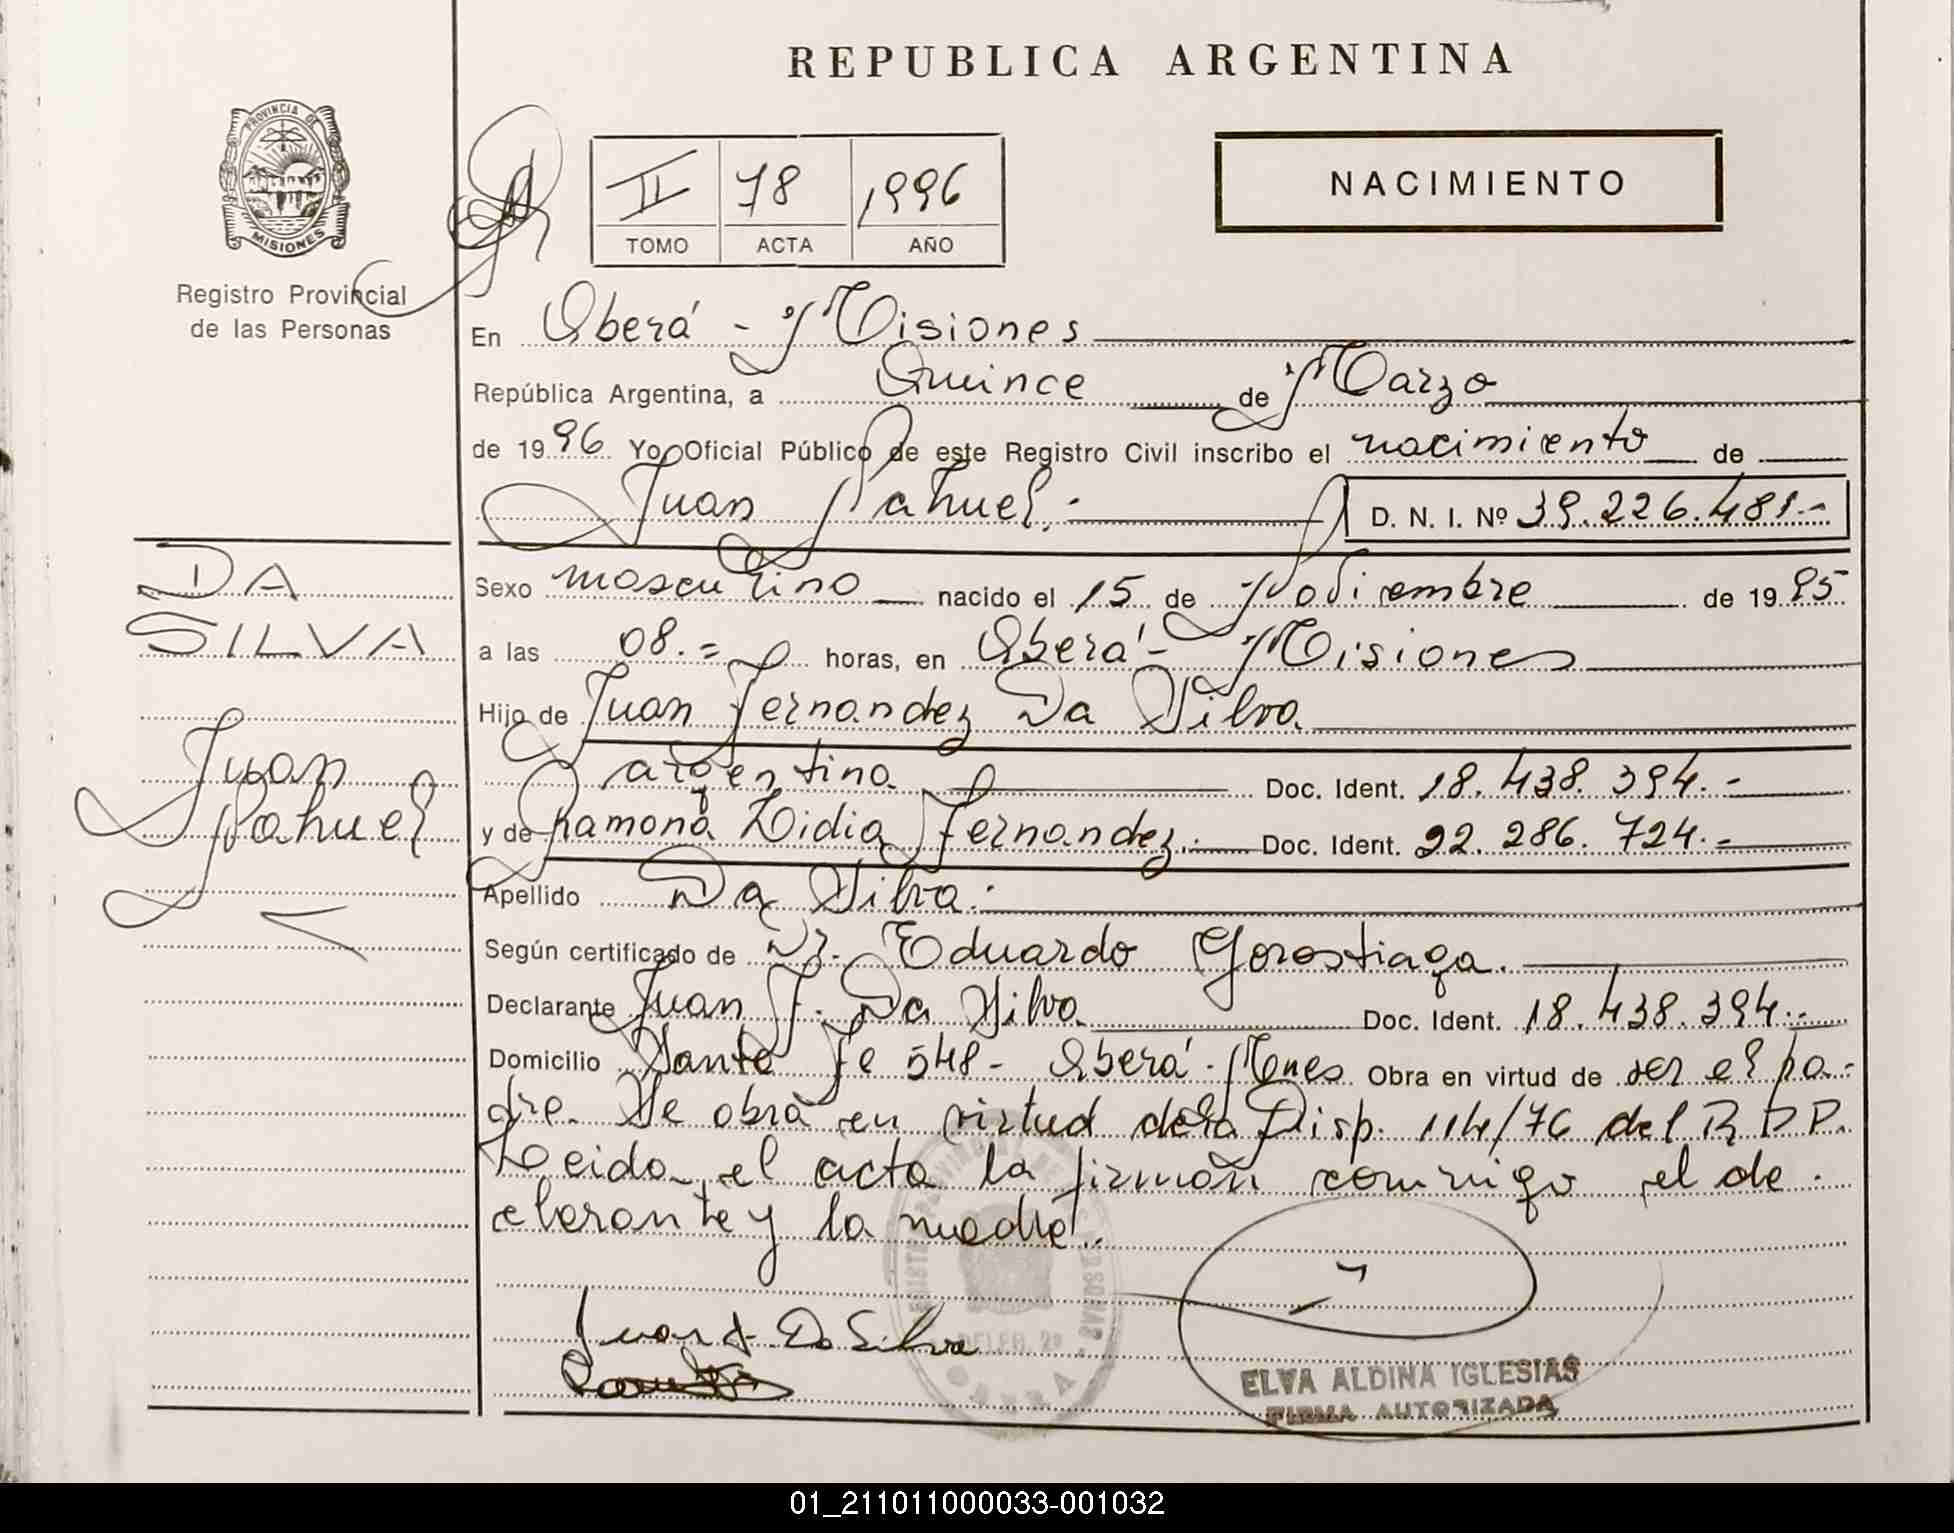 REPUBLICA ARGENTINA
PROVINCIA DE
MISIONES
Registro Provincial
de las Personas
II 78 1996
TOMO ACTA AÑO
NACIMIENTO
En Oberá - Misiones
República Argentina, a Quince de Marzo
de 1996 Yo Oficial Público de este Registro Civil inscribo el nacimiento de
Juan Nahuel.- D. N. I. Nº 39.226.481.-
DA
SILVA
Juan
Nahuel
Sexo masculino nacido el 15 de Diciembre de 1995
a las 08.= horas, en Oberá - Misiones
Hijo de Juan Fernandez Da Silva
argentina Doc. Ident. 18.438.394.-
y de Ramona Lidia Fernandez.- Doc. Ident. 22.286.724.-
Apellido Da Silva.
Según certificado de Dr. Eduardo Gorostiaga.
Declarante Juan F. Da Silva Doc. Ident. 18.438.394.-
Domicilio Santa Fe 548 - Oberá - Mnes Obra en virtud de ser el pa-
dre. Se obra en virtud de la Disp. 114/76 del R P P.
Leida el acta la firman conmigo el de
clarante y la madre.
Juan F. Da Silva
DELEG. 2ª
OBERA
ELVA ALDINA IGLESIAS
FIRMA AUTORIZADA
01_211011000033-001032